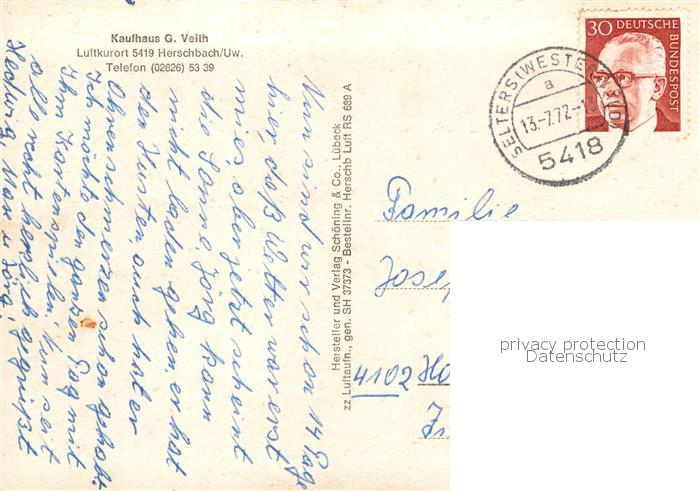 Kaufhaus G. Veith
Luftkurort 5419 Herschbach/Uw.
Telefon (02626) 53 39
Nun sind wir schon 14 Tage
hier, daß Wetter war erst
mies, aber jetzt scheint
die Sonne. Jörg kann
nicht baden gehen, er hat
den Husten auch hat er
Ohrenschmerzen schon gehabt.
Ich möchte den ganzen Tag mit
Ihm Kartenspielen. Nun seit
alle recht herzlich gegrüßt
Hedwig, Max u. Jörg!
Hersteller und Verlag Schöning & Co., Lübeck
zz Luftaufn., gen. SH 37373 - Bestellnr. Herschb Luft RS 689 A
30 DEUTSCHE
BUNDESPOST
SELTERS (WESTERWALD)
a
13.-7.72.-1
5418
Familie
Josep
4102 Ho
privacy protection
Datenschutz